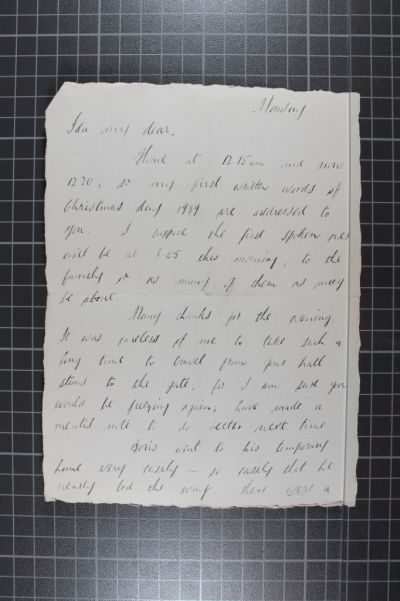 Monday
Ida my dear,
Home at 12.15am and now
12.20, so my first written words of
Christmas day 1939 are addressed to
you. I suppose the first spoken ones
will be at 5.05 this morning, to the
family or as many of them as may
be about.
Many thanks for the evening.
It was careless of me to take such a
long time to travel from your hall
stand to the gate, for I am sure you
would be freezing again; have made a
mental note to do better next time
Boris went to his temporary
home very easily — so easily that he
nearly led the way. There were a